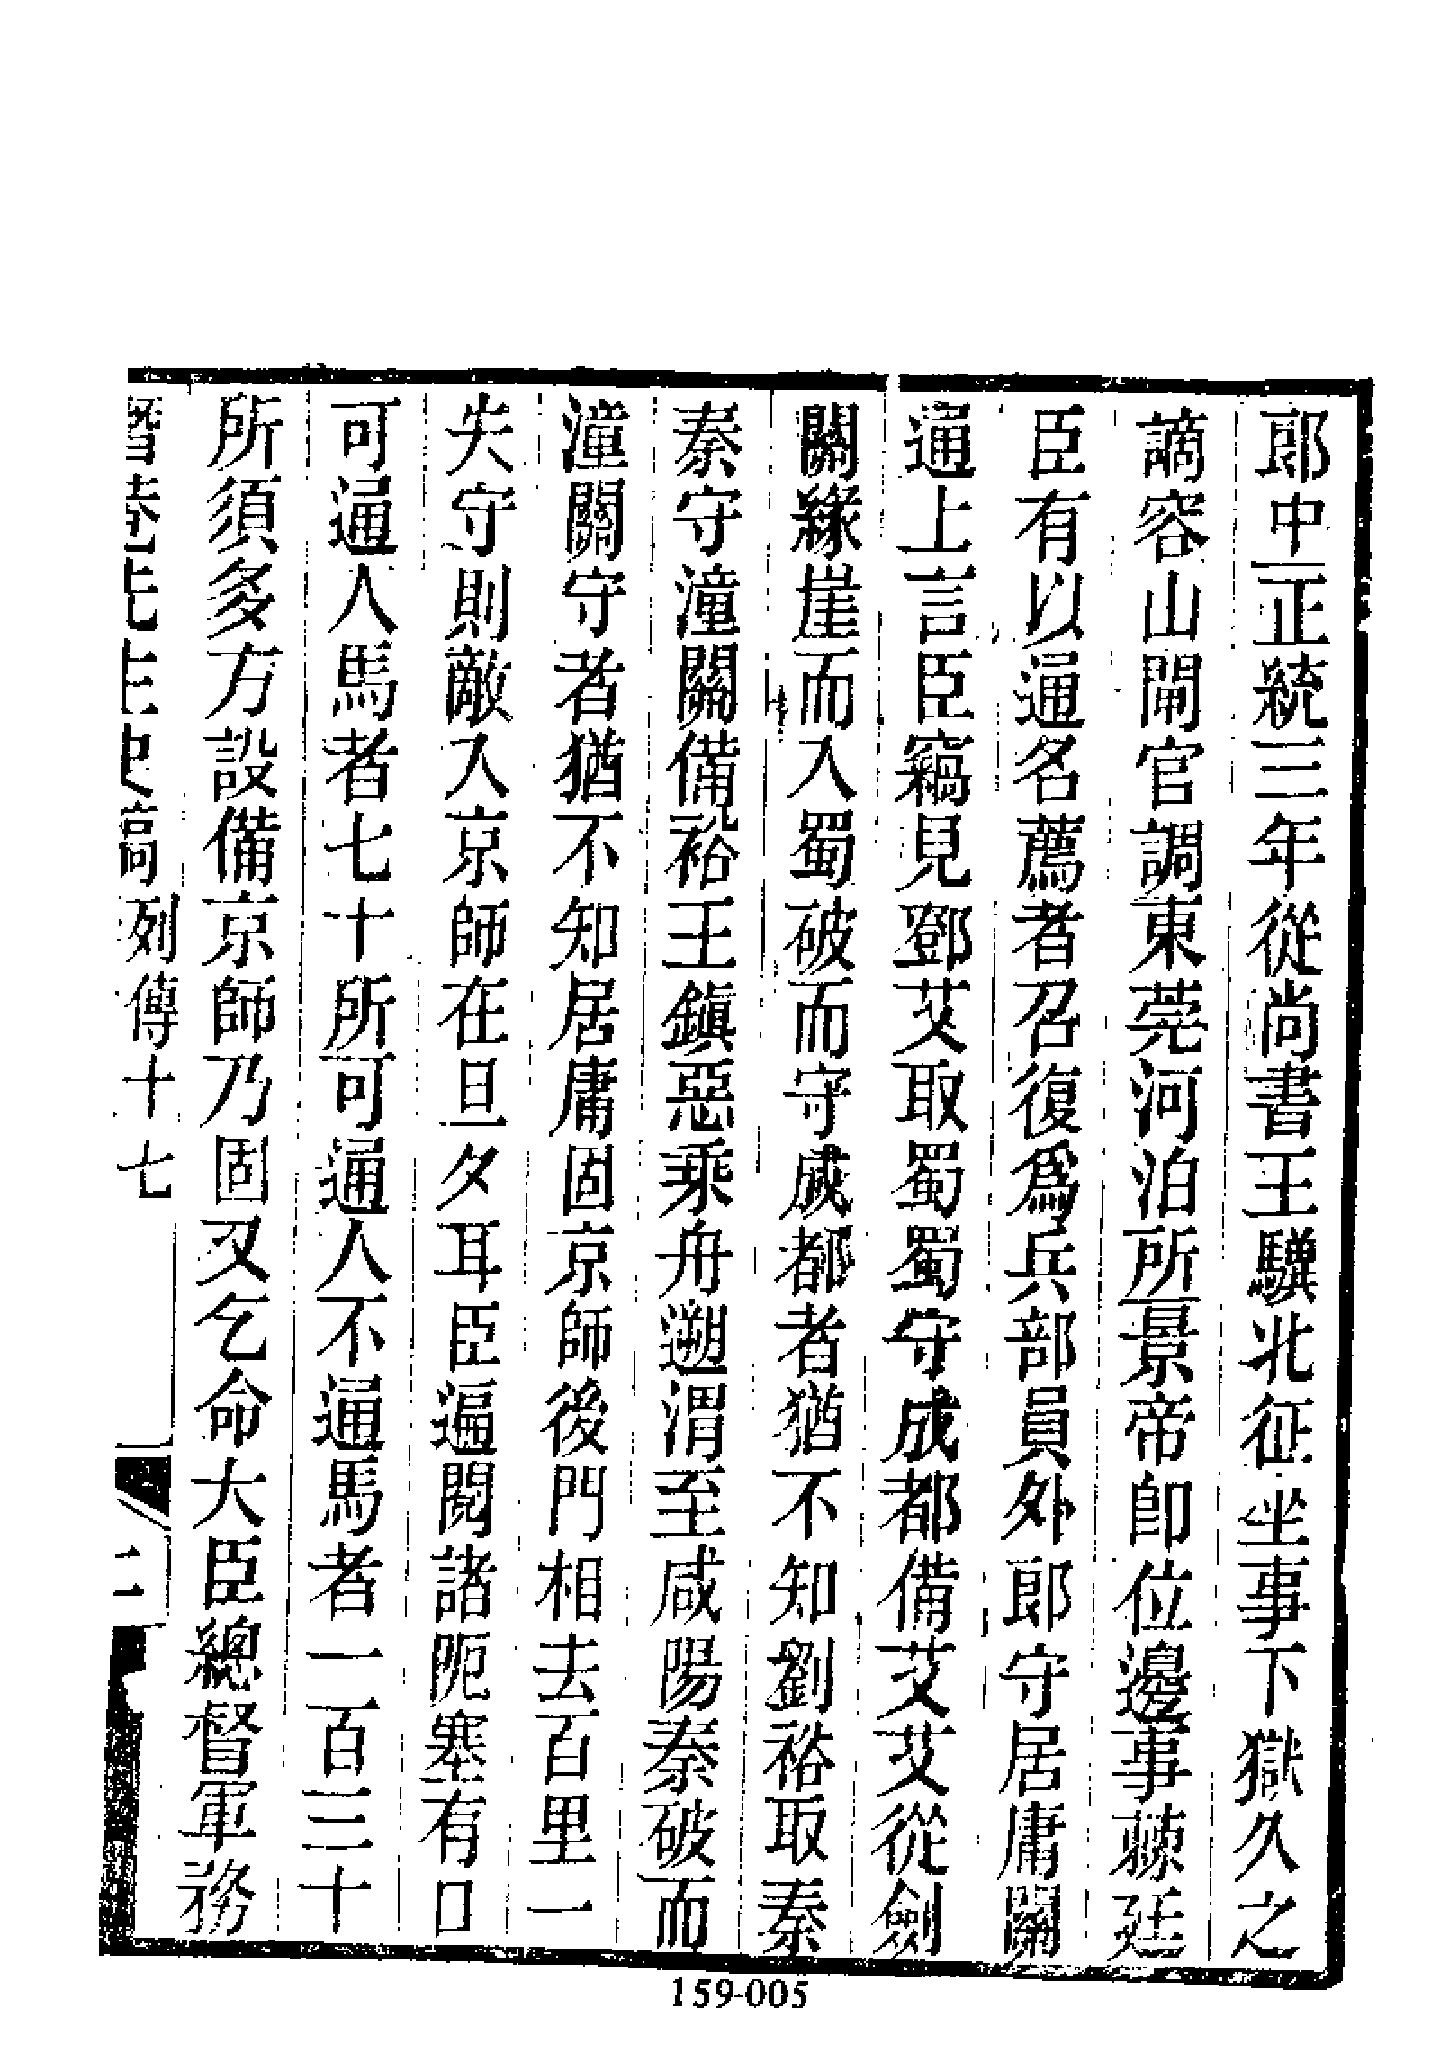 郎中正統三年從尚書王驥北征坐事下獄久之
謫容山閘官調東莞河泊所景帝即位邊事棘廷
臣有以通名薦者召復爲兵部員外郎守居庸關
通上言臣竊見鄧艾取蜀蜀守成都備艾艾從劍
關緣崖而入蜀破而守成都者猶不知劉裕取秦
秦守潼關備裕王鎮惡乘舟遡渭至咸陽秦破而
潼關守者猶不知居庸固京師後門相去百里一
失守則敵入京師在旦夕耳臣遍閱諸阨塞有口
可通人馬者七十所可通人不通馬者一百三十
所須多方設備京師乃固又乞命大臣總督軍務
潛菴先生史稿 列傳十七 二
159-005